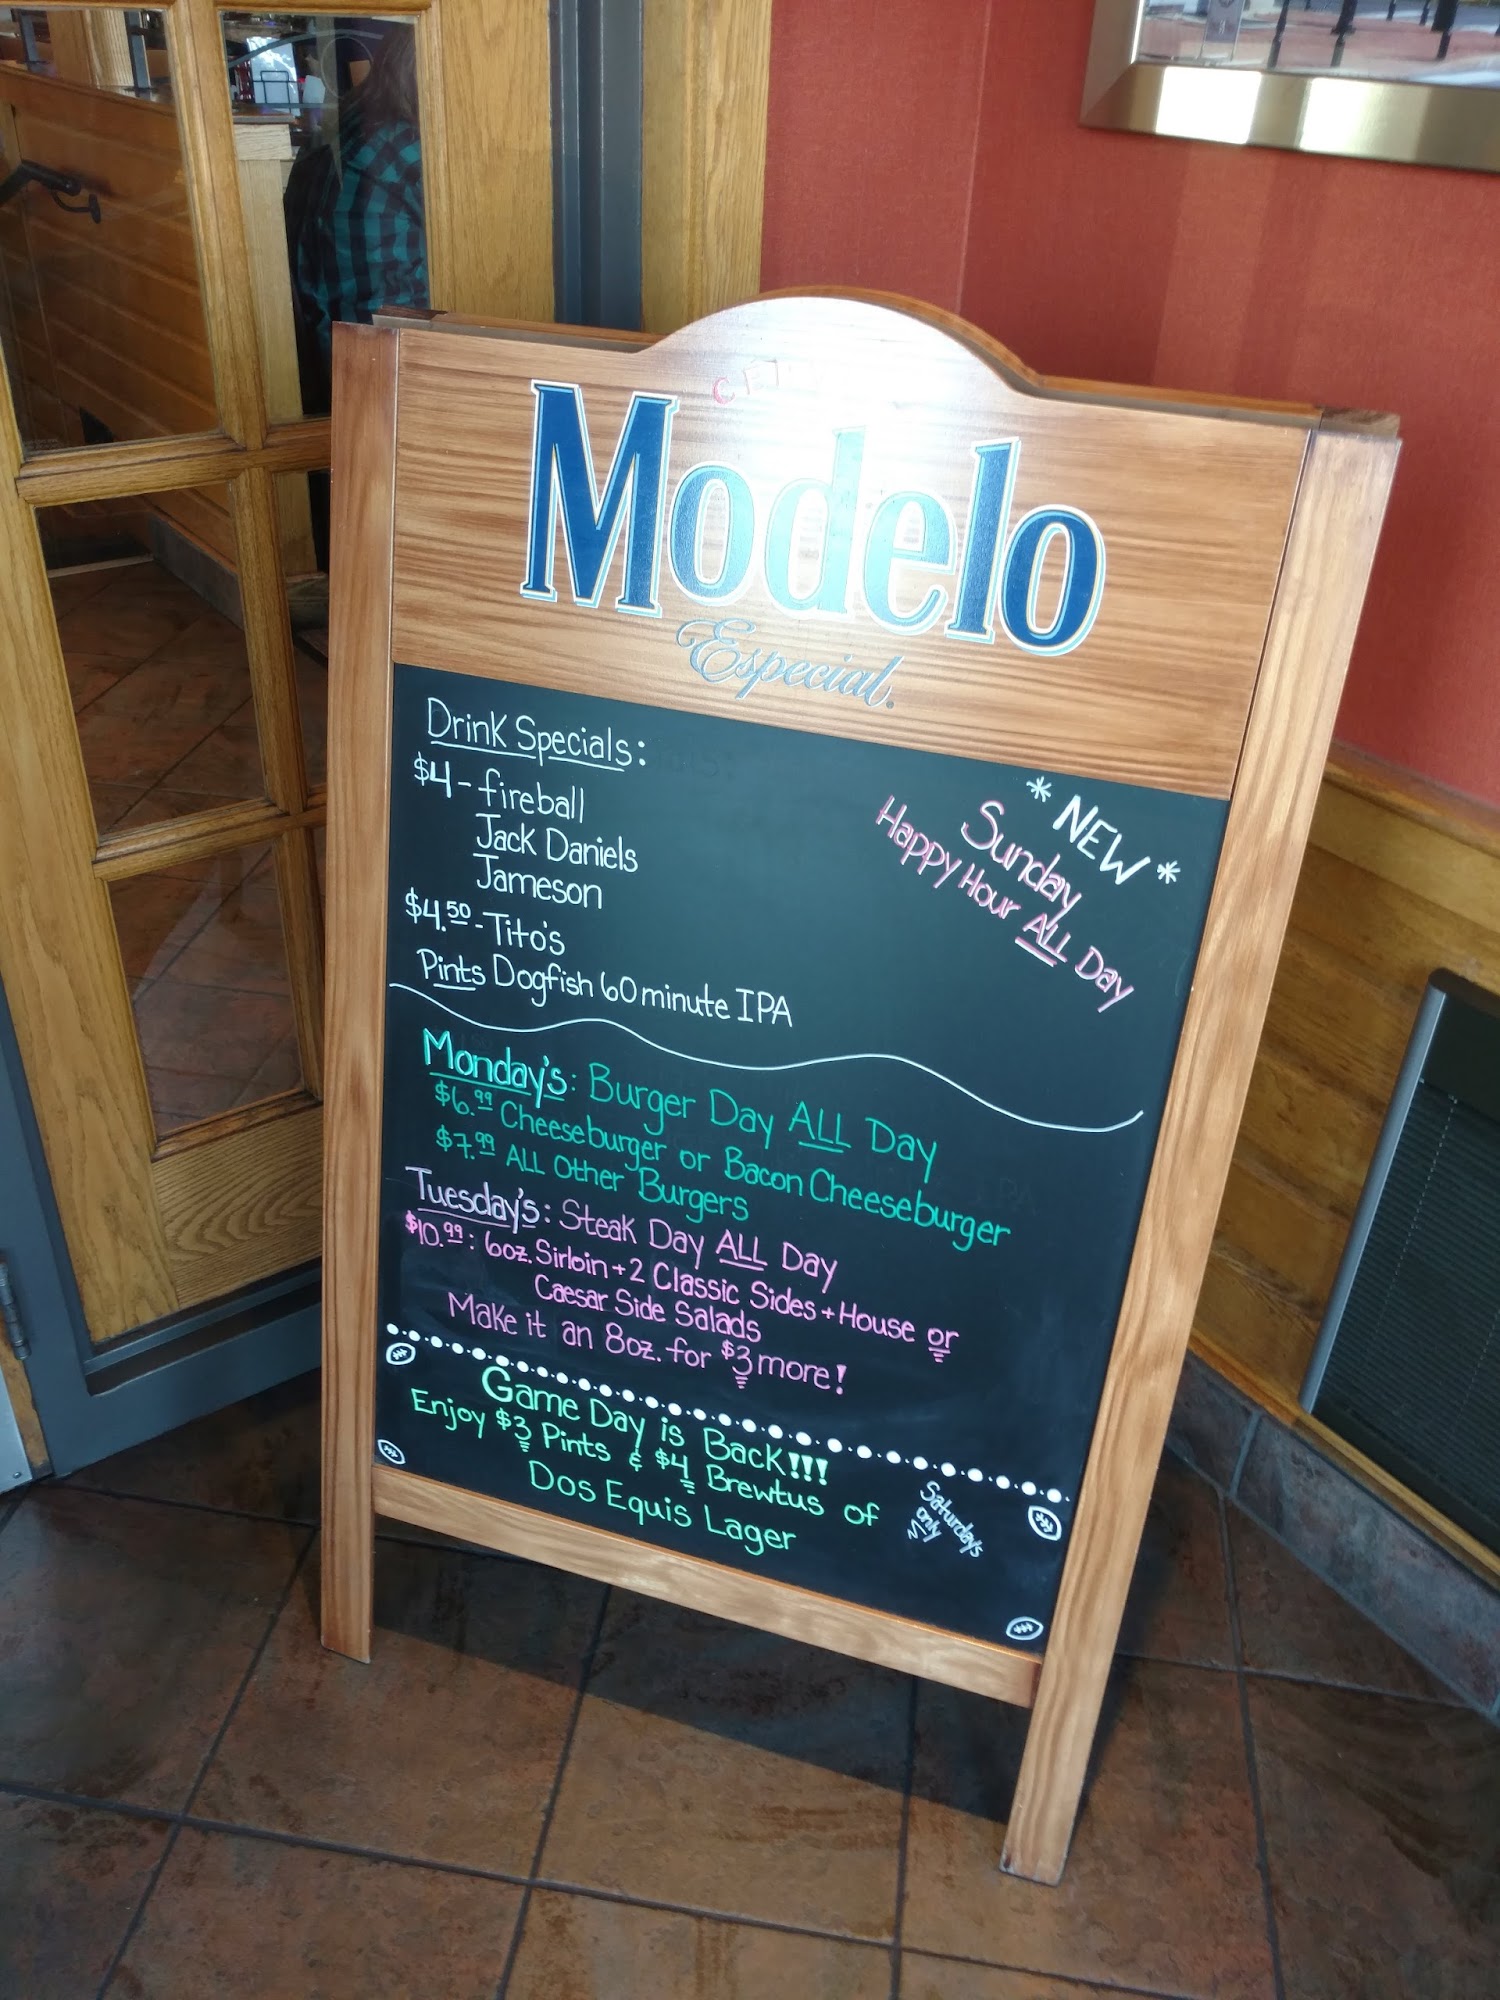 Modelo
Especial
Drink Specials:
$4 - fireball
Jack Daniels
Jameson
$4.50 - Tito's
Pints Dogfish 60 minute IPA
* NEW *
Sunday
Happy Hour ALL Day
Monday's: Burger Day ALL Day
$6.99 Cheeseburger or Bacon Cheeseburger
$7.99 ALL Other Burgers
Tuesday's: Steak Day ALL Day
$10.99: 6oz. Sirloin + 2 Classic Sides + House or
Caesar Side Salads
Make it an 8oz. for $3 more!
Game Day is Back!!!
Enjoy $3 Pints & $4 Brewtus of
Dos Equis Lager
Saturday's
only